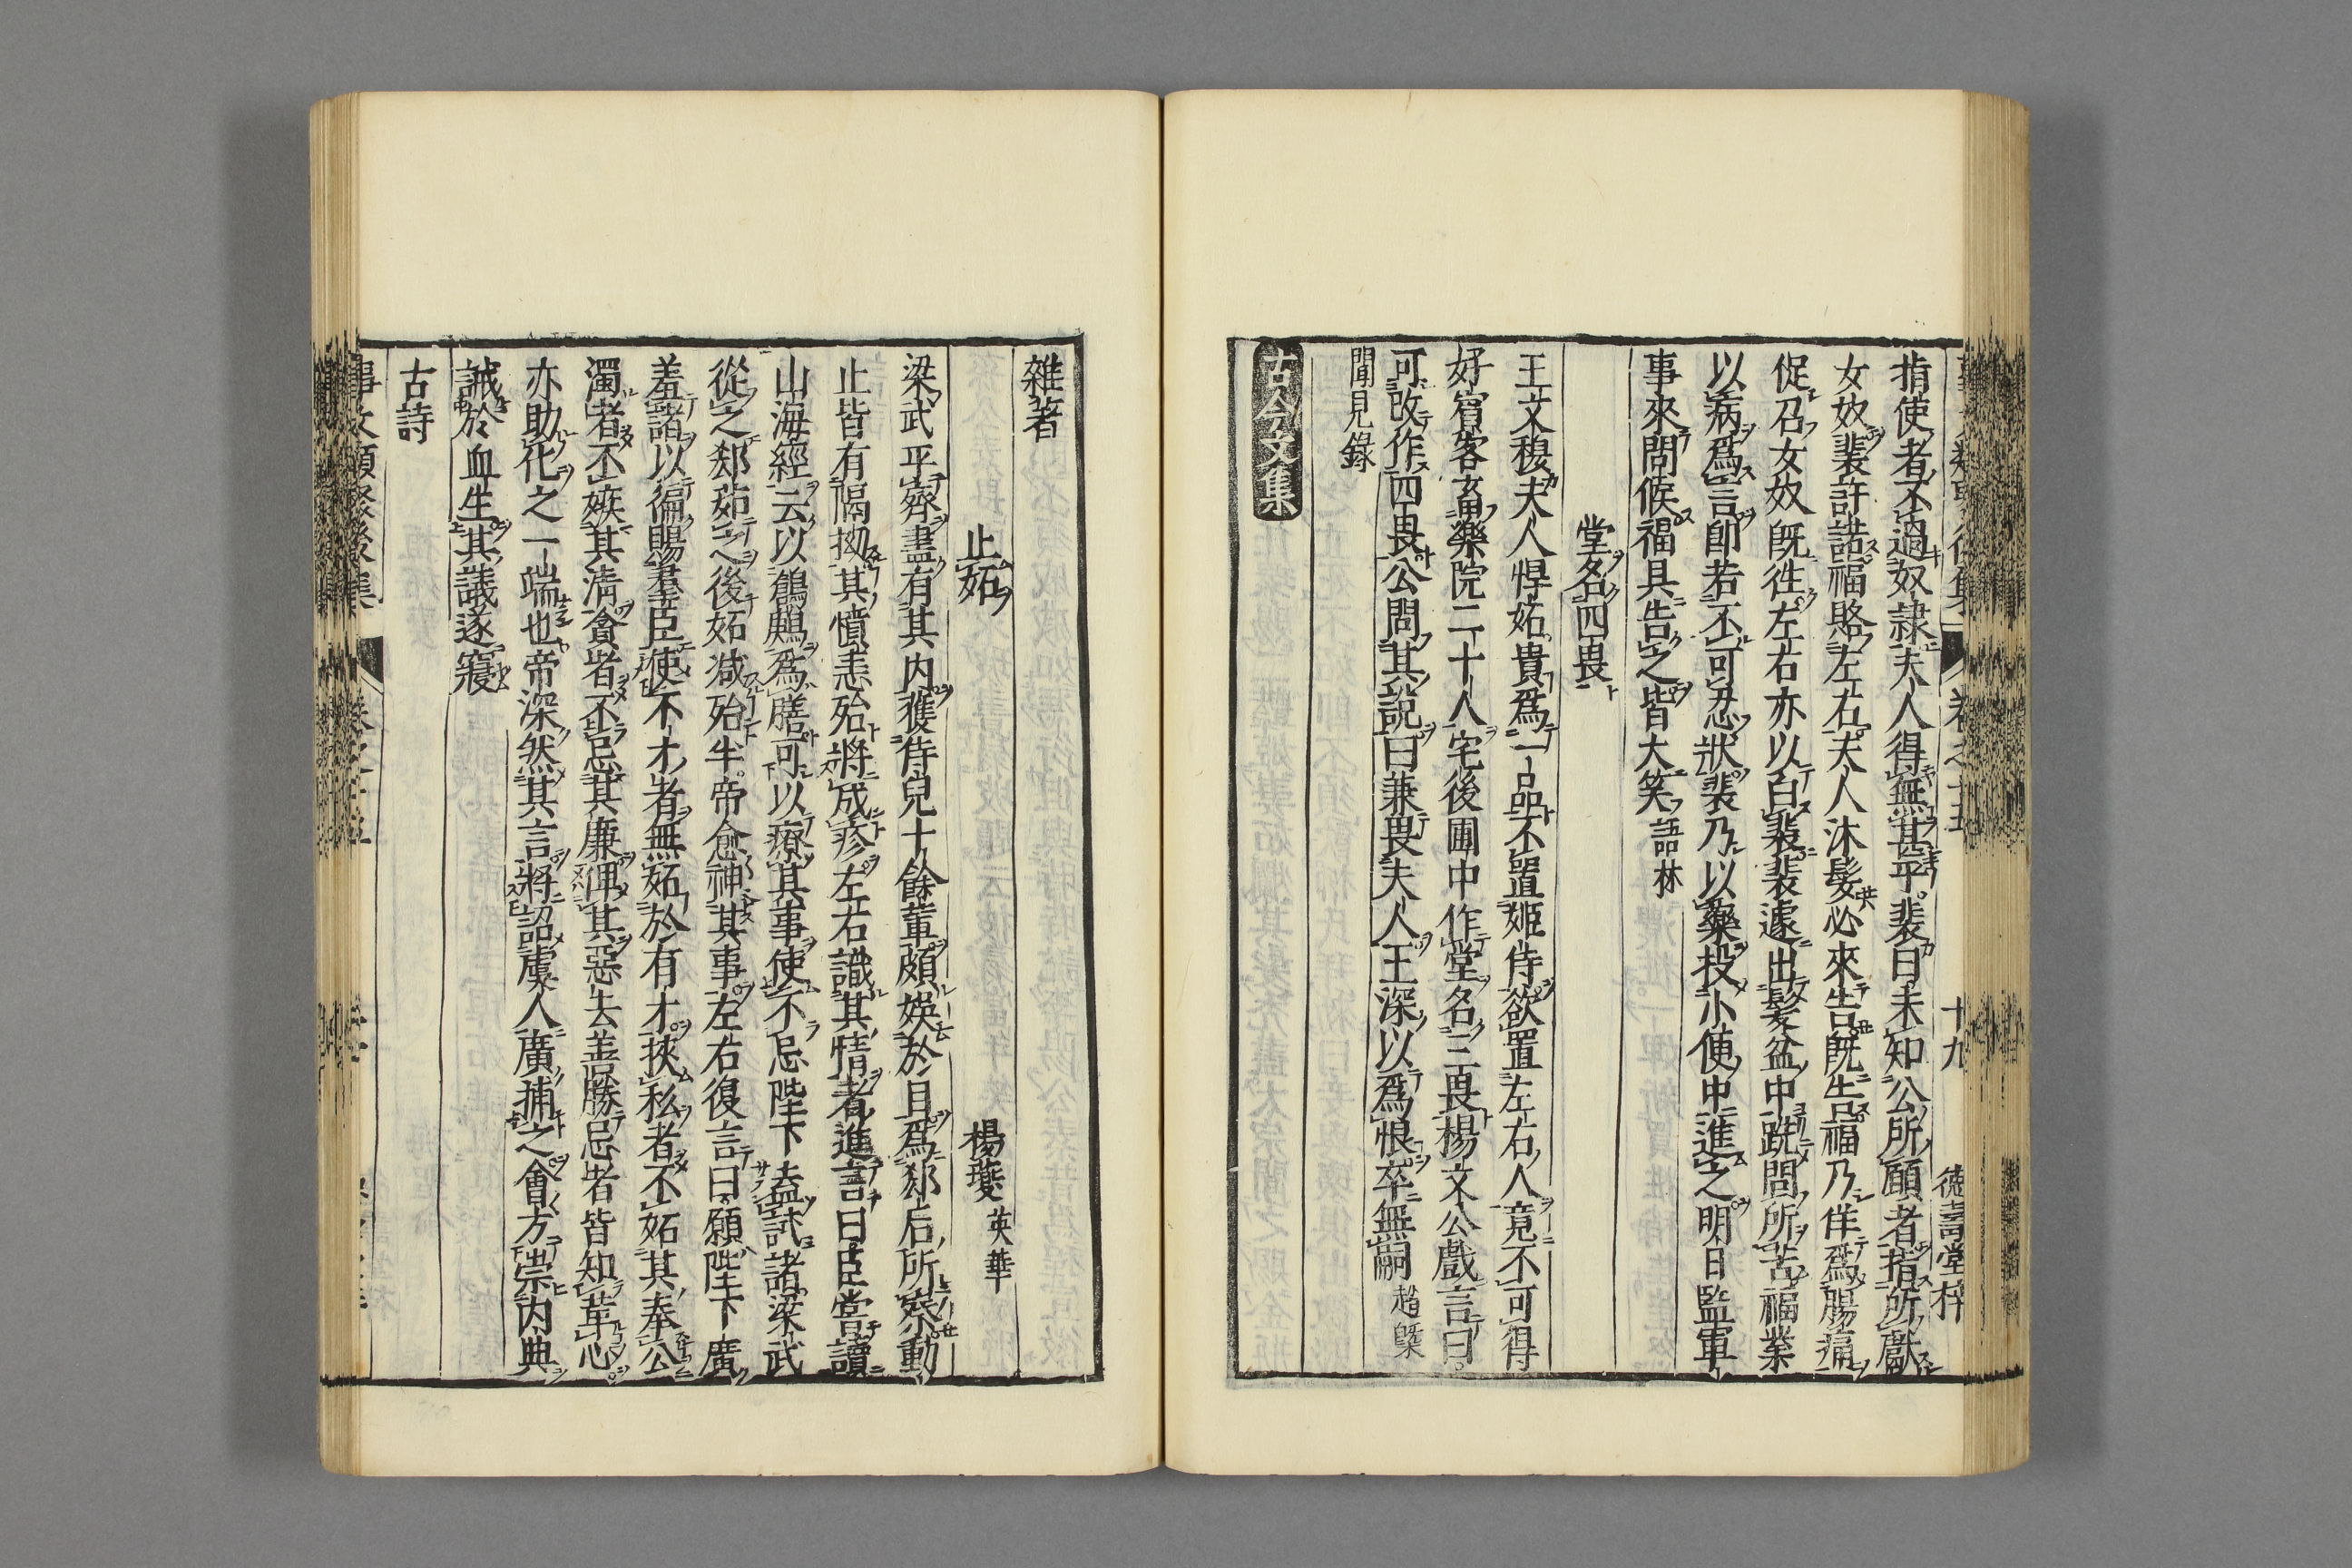 卷之十五 十九 德壽堂梓
指使者不過奴隷夫人得無甚乎裴曰未知公所願者指所獻
女奴裴許諾福賂左右夫人沐髮必來告既告福乃佯爲腸痛
促召女奴既徃左右亦以白裴裴遽出髮盆中跣問所苦福業
以病爲言卽若不可忍狀裴乃以藥投小便中進之明日監軍
事來問候福具告之皆大笑 語林
堂名四畏
王文穆夫人悍妬貴爲一品不置姬侍欲置左右人竟不可得
好賓客畜樂院二十人宅後圃中作堂名三畏楊文公戲言曰
可改作四畏公問其說曰兼畏夫人王深以爲恨卒無嗣 趙槩
聞見錄
古今文集
雜著
止妬 楊夔 英華
梁武平齊盡有其内獲侍兒十餘輩頗娛於目爲郄后所察動
止皆有隔拗其憤恚殆將成疹左右識其情者進言曰臣嘗讀
山海經云以鶬鶊爲膳可以療其事使不忌陛下盍試諸梁武
從之郄茹之後妬减殆半帝愈神其事左右復言曰願陛下廣
羞諸以徧賜羣臣使不才者無妬於有才挾私者不妬其奉公
濁者不嫉其清貪者不忌其廉俾其惡去善勝忌者皆知革心
亦助化之一端也帝深然其言將詔虞人廣捕之會方崇内典
誠於血生其議遂寢
古詩
事文類聚後集